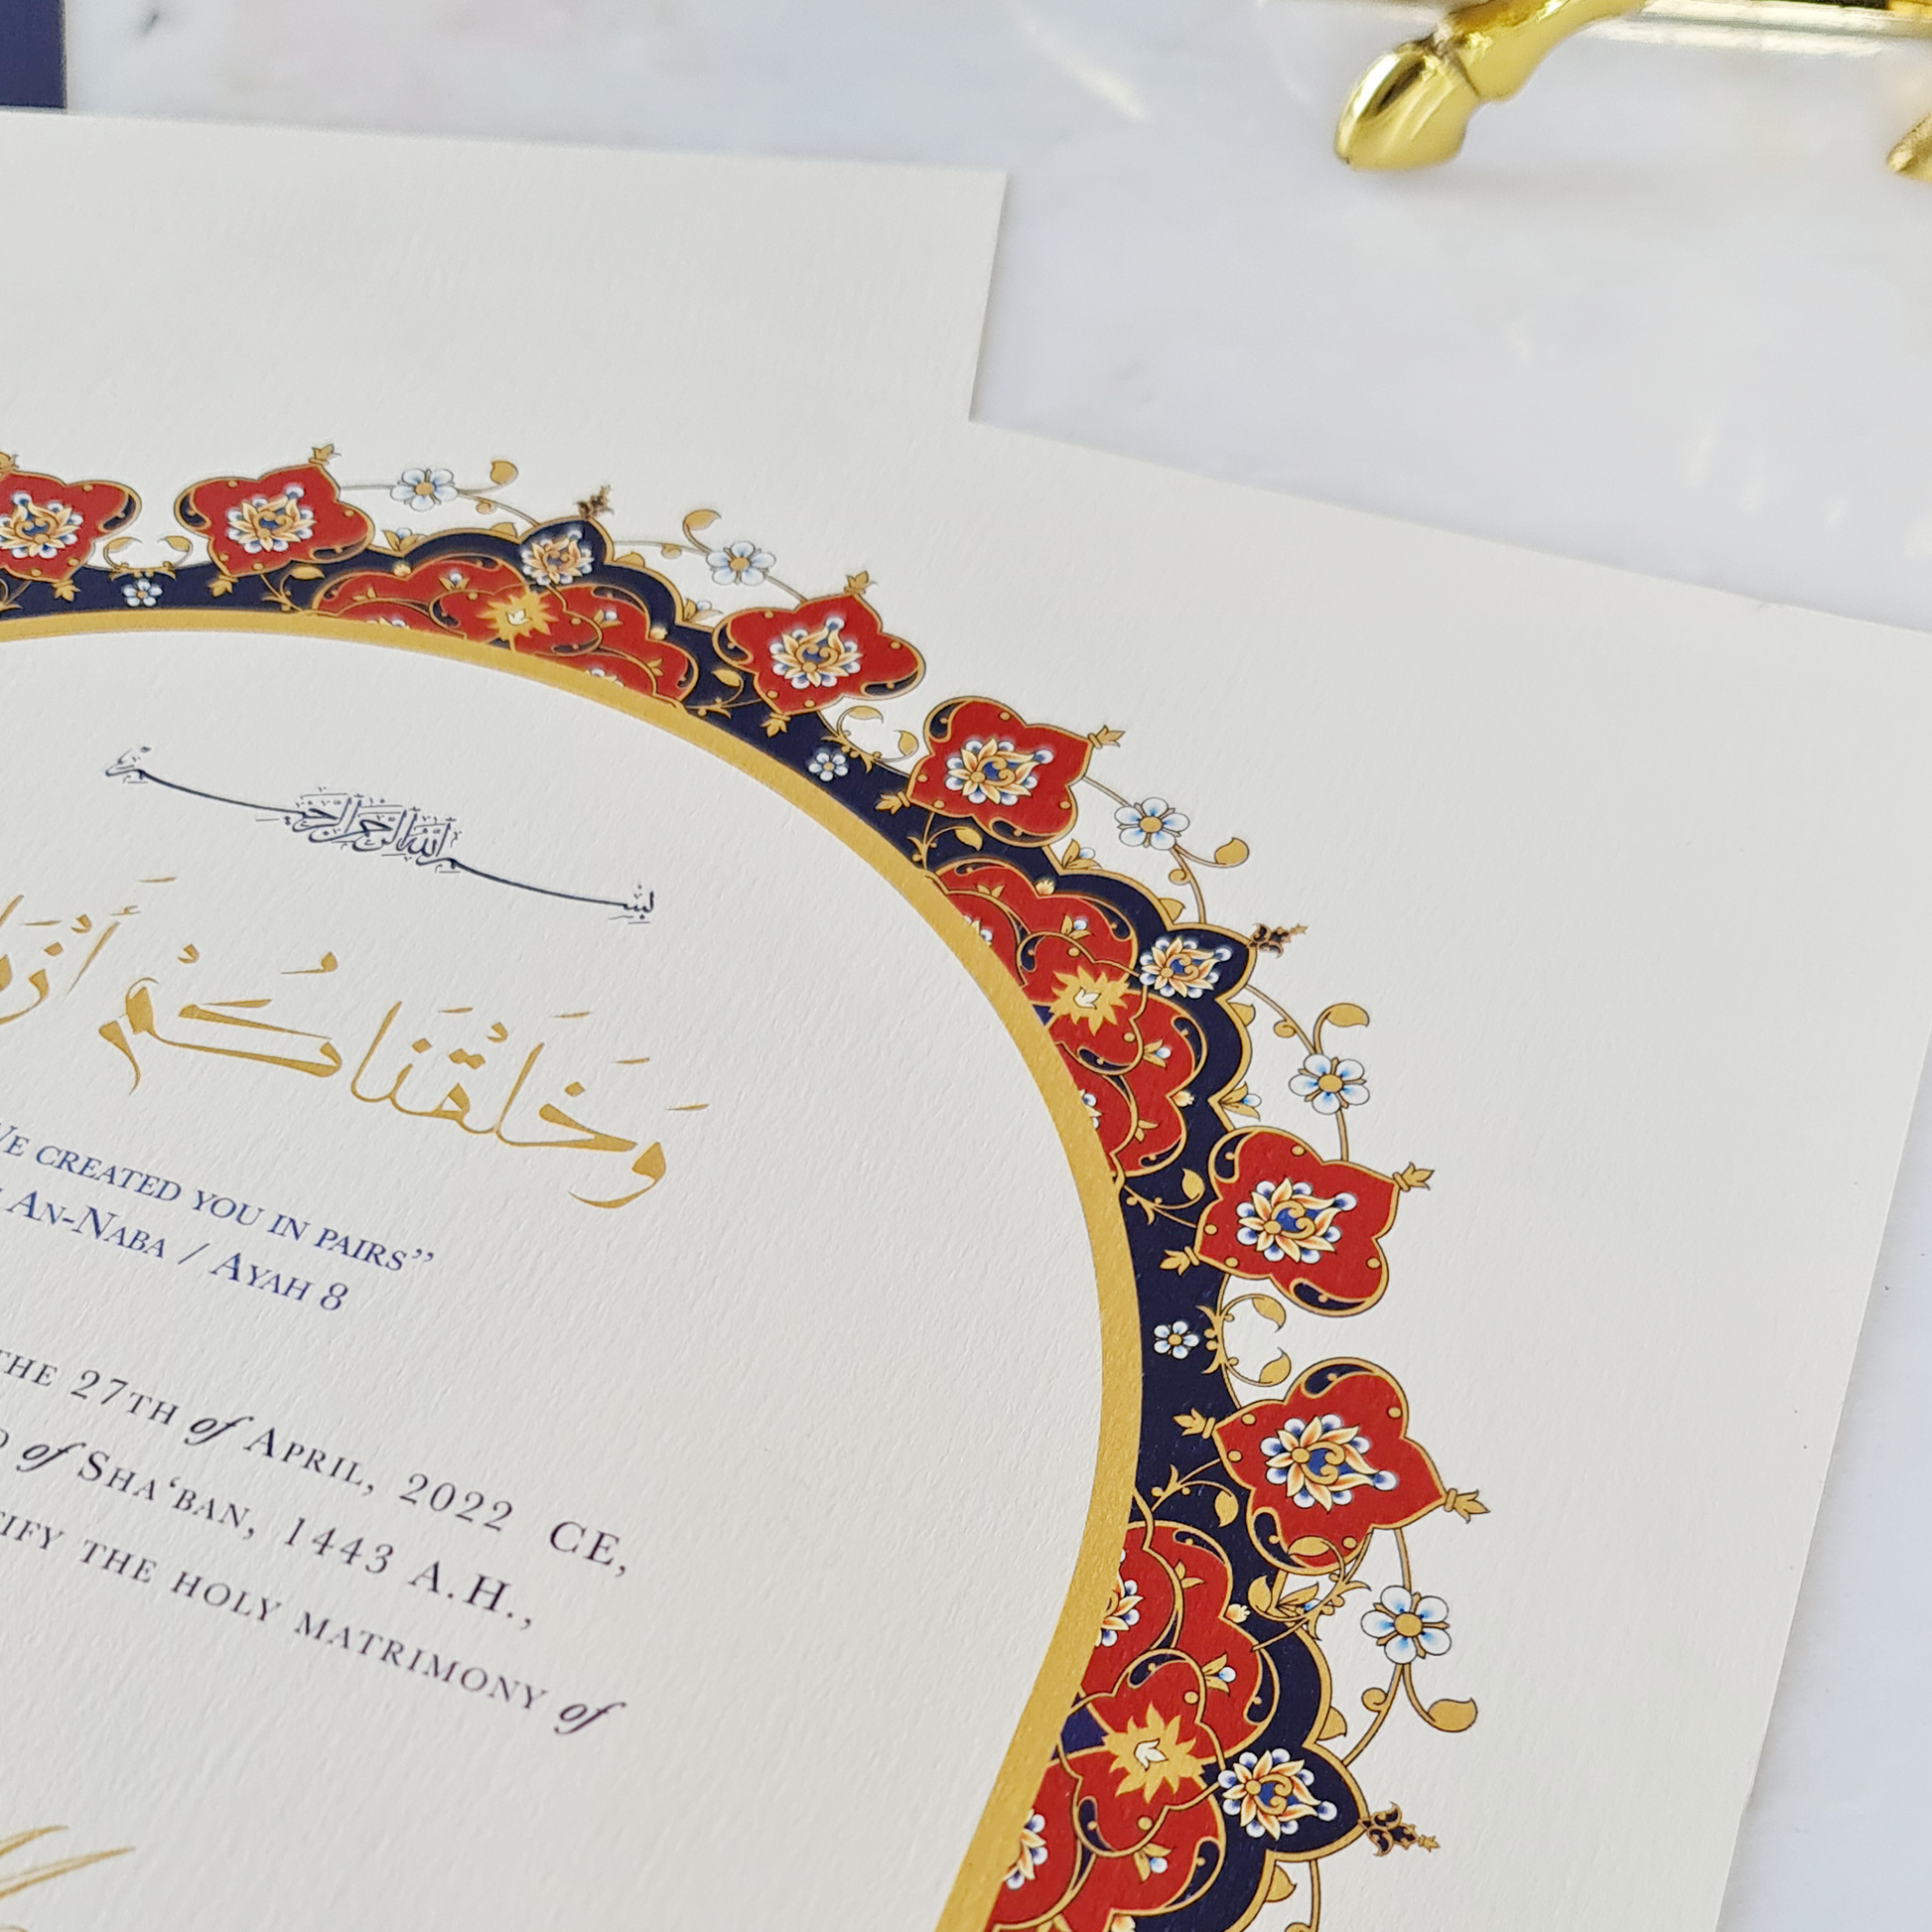 بسم الله الرحمن الرحيم
وَخَلَقْنَاكُمْ
CREATED YOU IN PAIRS”
AN-NABA / AYAH 8
THE 27TH of APRIL, 2022 CE,
of SHA‘BAN, 1443 A.H.,
THE HOLY MATRIMONY of